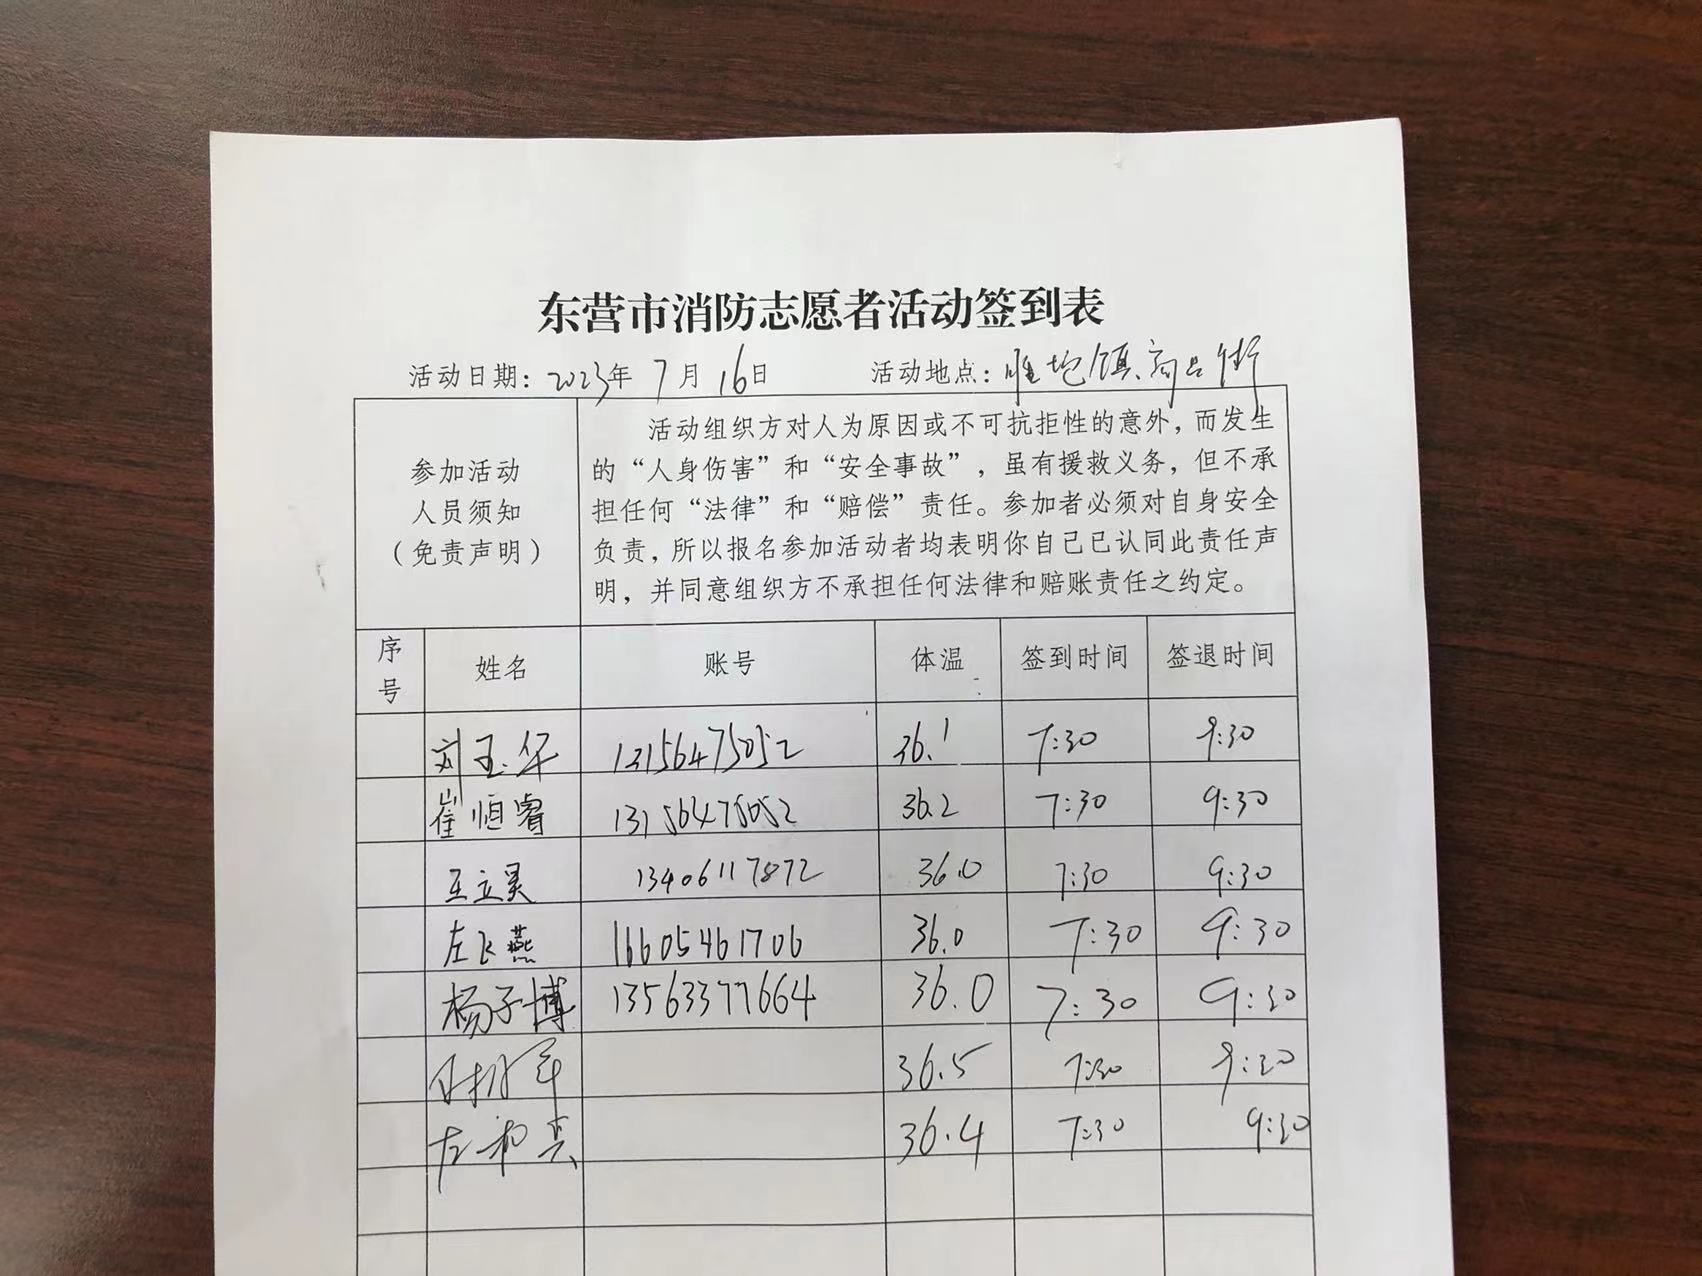 东营市消防志愿者活动签到表
活动日期：2023年 7月 16日 活动地点：雅埕镇商品街
参加活动
人员须知
（免责声明）
活动组织方对人为原因或不可抗拒性的意外，而发生
的“人身伤害”和“安全事故”，虽有援救义务，但不承
担任何“法律”和“赔偿”责任。参加者必须对自身安全
负责，所以报名参加活动者均表明你自己已认同此责任声
明，并同意组织方不承担任何法律和赔账责任之约定。
序号 姓名 账号 体温 签到时间 签退时间
刘玉华 13156475052 36.1 7:30 9:30
崔恒睿 13156475052 36.2 7:30 9:30
王立昊 13406117872 36.0 7:30 9:30
左飞燕 16605461706 36.0 7:30 9:30
杨子博 13563377664 36.0 7:30 9:30
36.5 7:30 9:30
左和兵 36.4 7:30 9:30